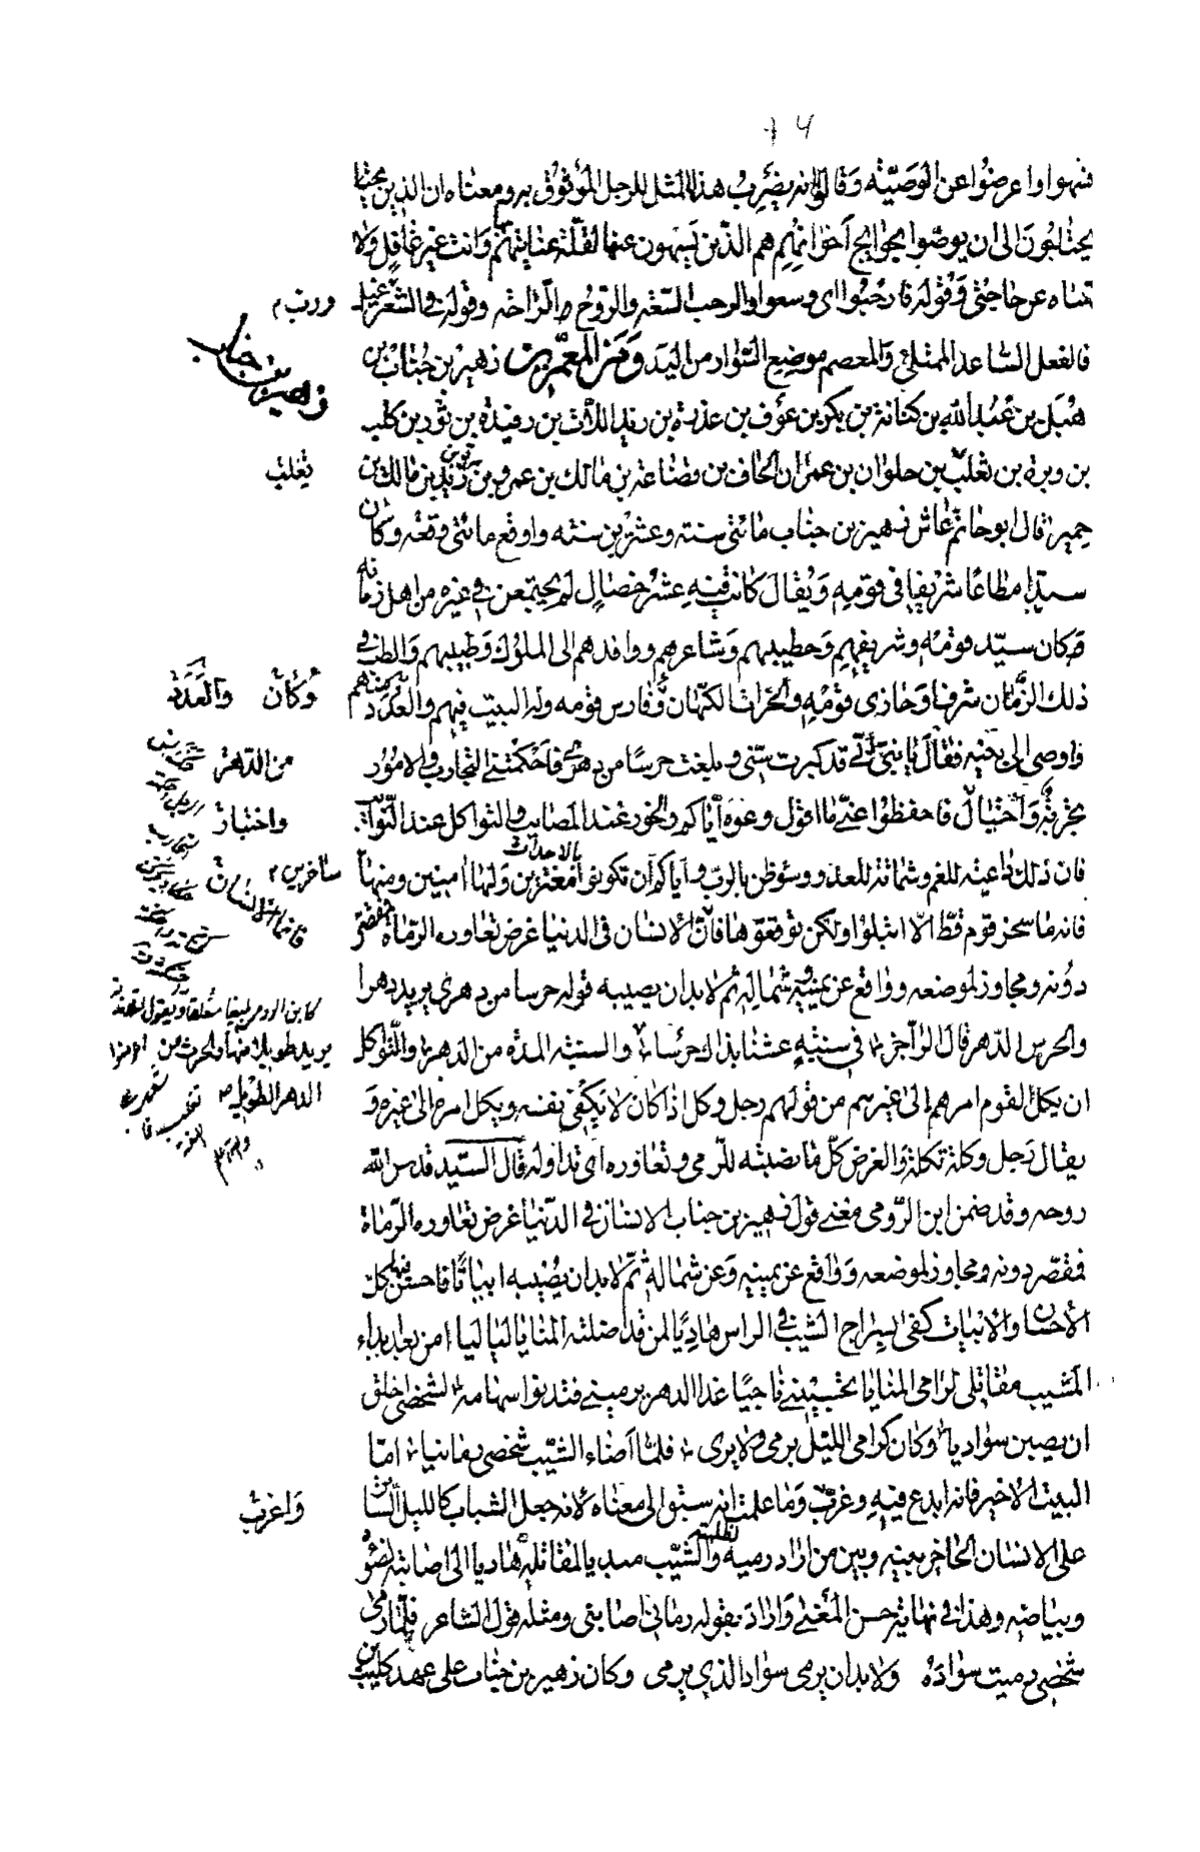 فسهوا واعرضوا عن الوصية وقالوا انه يضرب هذا المثل للرجل الموثوق به ومعناه ان الذين
يحتاجون الى ان يوصوا بحوايج اخوانهم هم الذين يسهون عنها لقلة عنايتهم وانت غير غافل ولا
ساه عن حاجتى وقوله فارحبوا اى وسعوا والرحب السعة والروح الراحة وقوله فى الشعر غيل
فالغيل الساعد الممتلئ والمعصم موضع السوار من اليد ومن المعمرين زهير بن جناب بن
هبل بن عبد الله بن كنانة بن بكر بن عوف بن عذرة بن زيد اللات بن رفيدة بن ثور بن كلب
بن وبرة بن تغلب بن حلوان بن عمران الحاف بن قضاعة بن مالك بن عمرو بن زيد بن مالك بن
حمير قال ابو حاتم عاش زهير بن جناب مائتى سنة وعشرين سنة واوقع مائتى وقعة وكان
سيدا مطاعا شريفا فى قومه ويقال كانت فيه عشر خصال لم يجتمعن فى غيره من اهل زمانه
كان سيد قومه وشريفهم وخطيبهم وشاعرهم ووافدهم الى الملوك وطبيبهم والطب فى
ذلك الزمان شرف وحازى قومه والحزاة الكهان وفارس قومه وله البيت فيهم والعدد منهم
فاوصى الى بنيه فقال يا بنى انى قد كبرت سنى وبلغت حرسا من دهرى فاحكمتنى التجارب والامور
تجربة واختيال فاحفظوا عنى ما اقول وعوه اياكم والخور عند المصايب والتواكل عند النوائب
فان ذلك داعية للغم وشماتة للعدو وسوء ظن بالرب واياكم ان تكونوا بالاحداث مغترين ولها امنين ومنها
فانه ما سخر قوم قط الا ابتلوا ولكن توقعوها فان الانسان فى الدنيا غرض تعاوره الرماة فمقصر
دونه ومجاوز لموضعه وواقع عن يمينه وشماله ثم لا بد ان يصيبه قوله حرسا من دهرى يريد دهرا
والحرس الدهر قال الراجز فى سنبة عشنا بذاك حرسا والسنبة المدة من الدهر والتواكل
ان يكل القوم امرهم الى غيرهم من قولهم رجل وكل اذا كان لا يكفى نفسه ويكل امره الى غيره و
يقال رجل وكلة تكلة والغرض كل ما نصبته للرمى وتعاوره اى تداوله قال السيد قدس الله
روحه وقد ضمن ابن الرومى معنى قول زهير بن جناب الانسان فى الدنيا غرض تعاوره الرماة
فمقصر دونه ومجاوز لموضعه وواقع عن يمينه وعن شماله ثم لا بد ان يصيبه ابياتا فاحسن فيها كل
الاحسان والابيات كفى بسراج الشيب فى الراس هاديا لمن قد اضلته المنايا لياليا امن بعد ابداء
المشيب مقاتلى لرامى المنايا تحسبينى ناجيا غدا الدهر يرمينى فتدنوا سهامه لشخصى اخلق
ان يصبن سواديا وكان كرامى الليل يرمى ولا يرى فلما اضاء الشيب شخصى رمانيا اما
البيت الاخير فانه ابدع فيه وغرب وما علمت انه سبق الى معناه لانه جعل الشباب كالليل الساتر
على الانسان الحاجز بينه وبين من اراد رميه لظلمته والشيب مبديا لمقاتله هاديا الى اصابته لضوئه
وبياضه وهذا فى نهاية حسن المعنى واراد بقوله رمانى اصابنى ومثله قول الشاعر فلما رمى
شخصى رميت سواده ولا بد ان يرمى سواد الذى يرمى وكان زهير بن جناب على عهد كليب بن
زهير بن جناب
تغلب
وكان والعدد
من الدهر
واختبار
ساخرين
فانما الانسان
يريد طويلا منها والحرس من
الدهر الطويل
واغرب